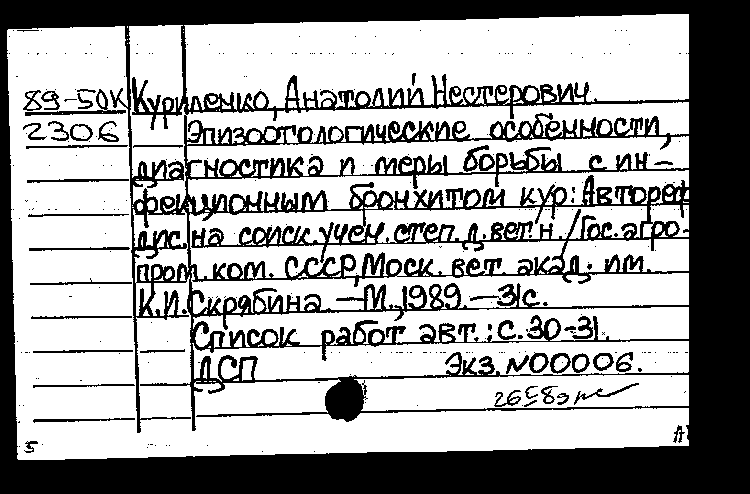 89-50К Куриленко, Анатолий Нестерович.
2306 Эпизоотологические особенности,
диагностика и меры борьбы с ин-
фекционным бронхитом кур: Автореф
дис. на соиск. учен. степ. д. вет. н. / Гос. агро-
пром. ком. СССР, Моск. вет. акад. им.
К.И. Скрябина. — М., 1989. — 31с.
Список работ авт.: с. 30-31.
ДСП Экз. №00006.
5